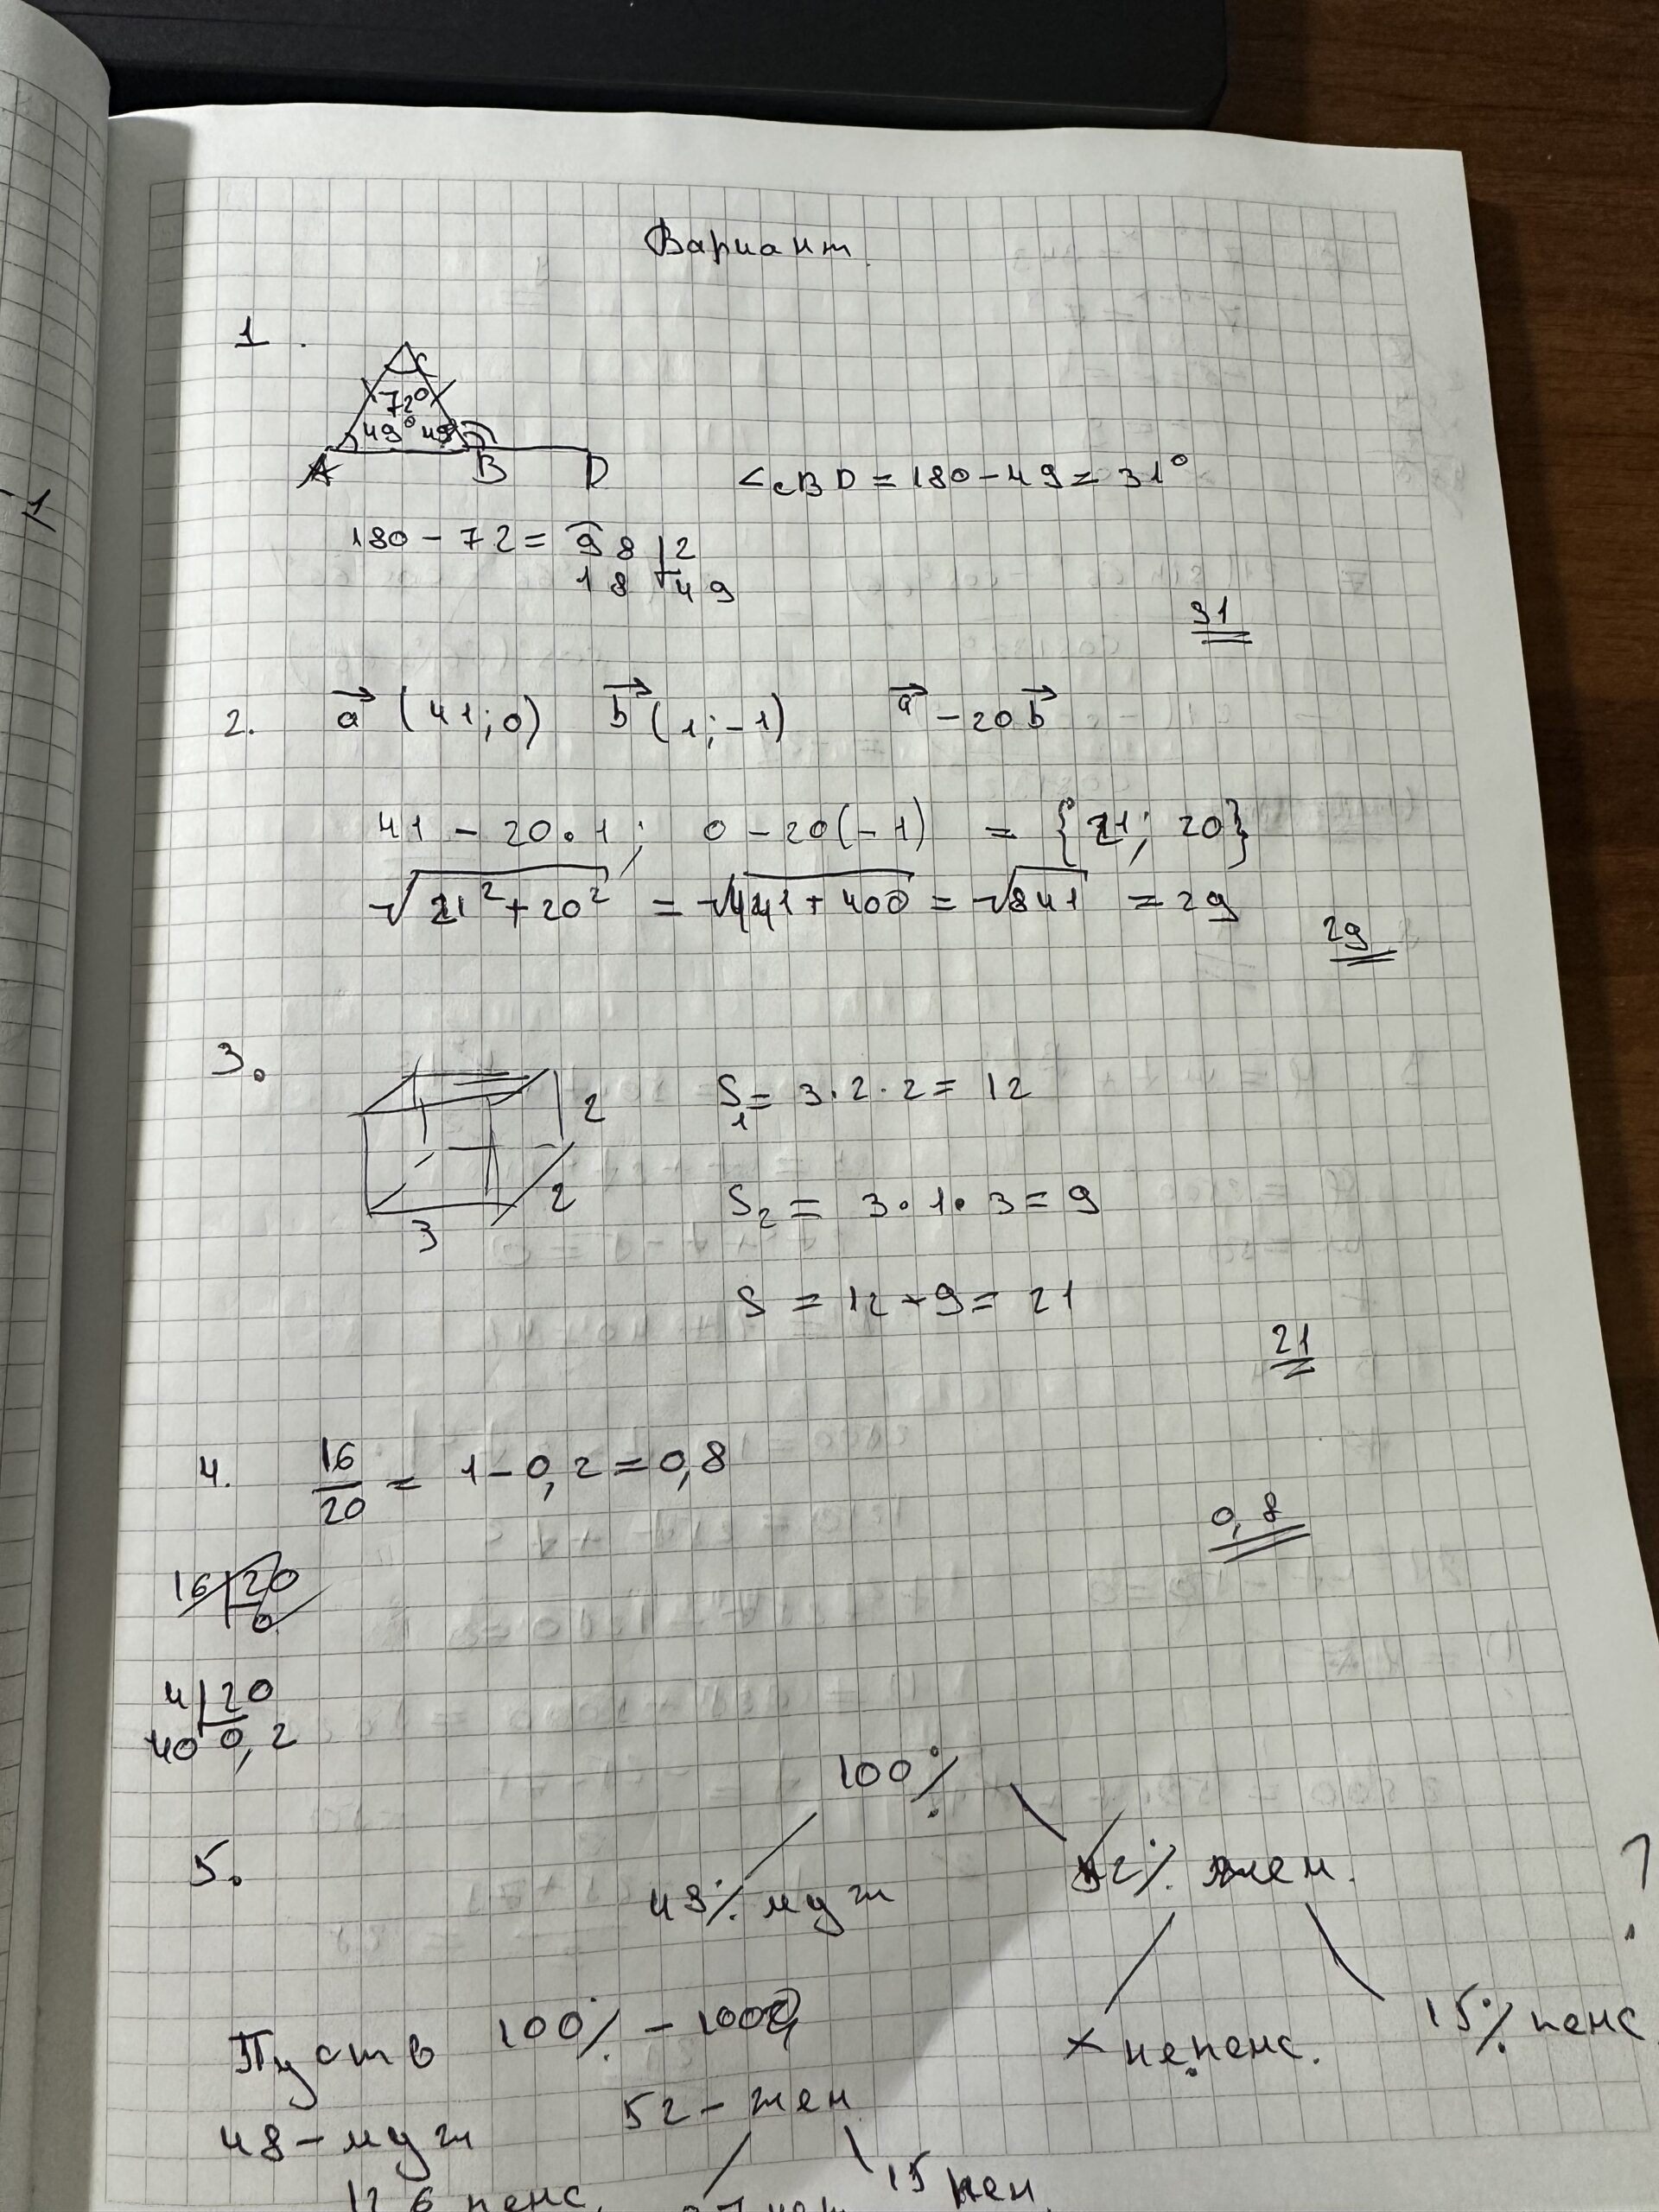 Вариант.
1.
C
72°
49° 49°
A B D
<CBD = 180 - 49 = 31°
180 - 72 = 98 | 2
18 49
31
2. a (41; 0) b (1; -1) a - 20b
41 - 20 • 1; 0 - 20(-1) = {21; 20}
√21² + 20² = √441 + 400 = √841 = 29
29
3.
2
2
3
S₁ = 3 · 2 · 2 = 12
S₂ = 3 • 1 • 3 = 9
S = 12 + 9 = 21
21
4. 16/20 = 1 - 0,2 = 0,8
0,8
16 | 20
0
4 | 20
40 0,2
5.
100%
48% муж 52% жен. ?
x непенс. 15% пенс
Пусть 100% - 100
48 - муж 52 - жен
12,6 пенс. 15 пен.
-1